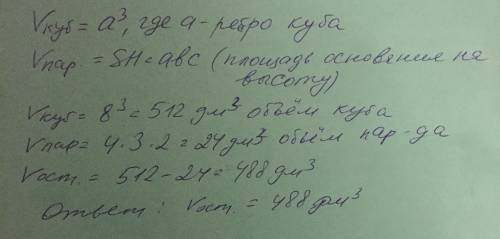 Vкуб = a³, где а - ребро куба
Vпар = SH = abc (площадь основения на
высоту)
Vкуб = 8³ = 512 дм³ объём куба
Vпар = 4 · 3 · 2 = 24 дм³ объём пар-да
Vост. = 512 - 24 = 488 дм³
Ответ: Vост. = 488 дм³